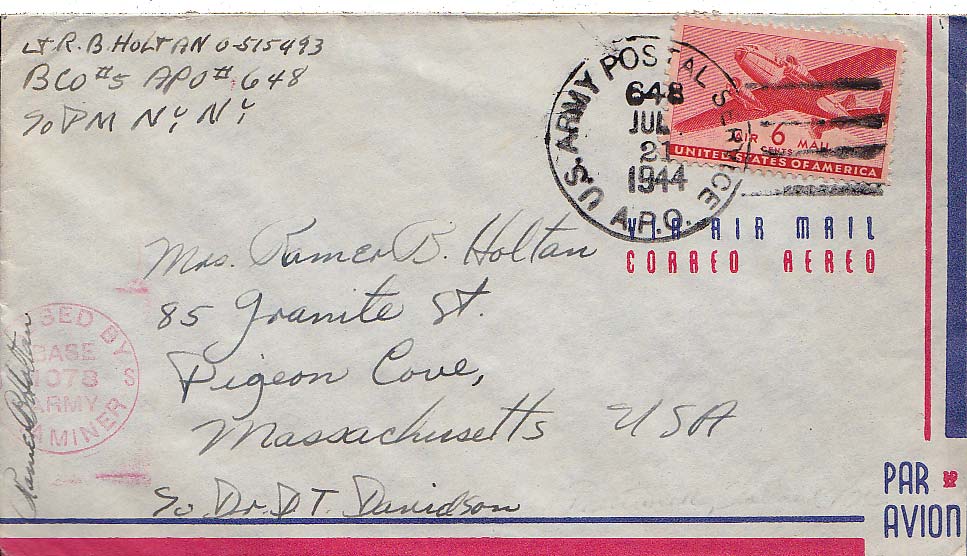 Lt R. B. HOLTAN O-515493
BCO #5 APO # 648
c/o PM N.Y. N.Y.
U.S. ARMY POSTAL SERVICE
648
JUL
21
1944
A.P.O.
AIR 6 MAIL
CENTS
UNITED STATES OF AMERICA
VIA AIR MAIL
CORREO AEREO
Mrs. Ramer B. Holtan
85 Granite St.
Pigeon Cove,
Massachusetts USA
c/o Dr. D. T. Davidson
SED BY
BASE
1078
ARMY
MINER
S
PAR
AVION